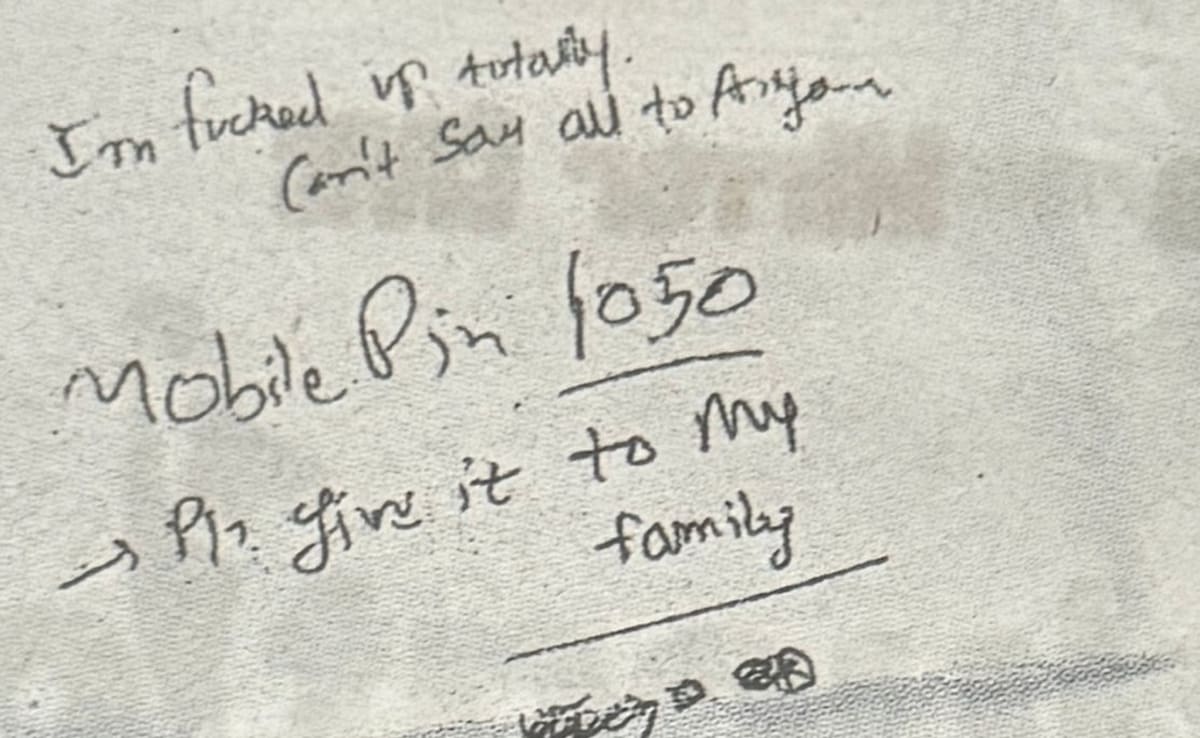 I'm fucked up totally.
Can't say all to Anyone
Mobile Pin 1050
→ Pls. give it to my
family